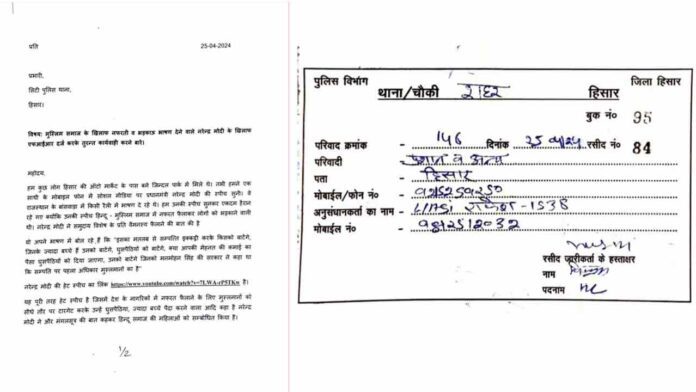 प्रति
25-04-2024
प्रभारी,
सिटी पुलिस थाना,
हिसार।
विषय: मुस्लिम समाज के खिलाफ नफरती व भड़काऊ भाषण देने वाले नरेन्द्र मोदी के खिलाफ
एफआईआर दर्ज करके तुरन्त कार्यवाही करने बारे।
महोदय,
हम कुछ लोग हिसार की ऑटो मार्केट के पास बने जिन्दल पार्क में मिले थे। तभी हमने एक
साथी के मोबाइल फोन में सोशल मीडिया पर प्रधानमंत्री नरेन्द्र मोदी की स्पीच सुनी। वे
राजस्थान के बांसवाड़ा में किसी रैली में भाषण दे रहे थे। हम उनकी स्पीच सुनकर एकदम हैरान
रह गए क्योंकि उनकी स्पीच हिन्दू - मुस्लिम समाज में नफरत फैलाकर लोगों को भड़काने वाली
थी। नरेन्द्र मोदी ने समुदाय विशेष के प्रति वैमनस्य फैलाने की बात की है
वो अपने भाषण में बोल रहे हैं कि "इसका मतलब ये सम्पत्ति इक्कठ्ठी करके किसको बाटेंगे,
जिनके ज्यादा बच्चे हैं उनको बाटेंगे, घुसपैठियों को बाटेंगे, क्या आपकी मेहनत की कमाई का
पैसा घुसपैठियों को दिया जाएगा, उनको बाटेंगे जिनको मनमोहन सिंह की सरकार ने कहा था
कि सम्पति पर पहला अधिकार मुसलमानों का है"
नरेन्द्र मोदी की हेट स्पीच का लिंक https://www.youtube.com/watch?v=7LWA-cP5TKw है।
यह पूरी तरह हेट स्पीच है जिसमें देश के नागरिकों में नफरत फैलाने के लिए मुसलमानों को
सीधे तौर पर टारगेट करके उन्हें घुसपैठिया, ज्यादा बच्चे पैदा करने वाला आदि कहा है नरेन्द्र
मोदी ने और मंगलसूत्र की बात कहकर हिन्दू समाज की महिलाओं को सम्बोधित किया है।
1/2
पुलिस विभाग
थाना/चौकी शहर हिसार
जिला हिसार
बुक न० 95
परिवाद क्रमांक - 146 दिनांक 25/04/24 रसीद न० 84
परिवादी - व अन्य
पता - हिसार
मोबाईल/फोन न० -
अनुसंधानकर्ता का नाम -
मोबाईल न० -
रसीद जारीकर्ता के हस्ताक्षर
नाम
पदनाम